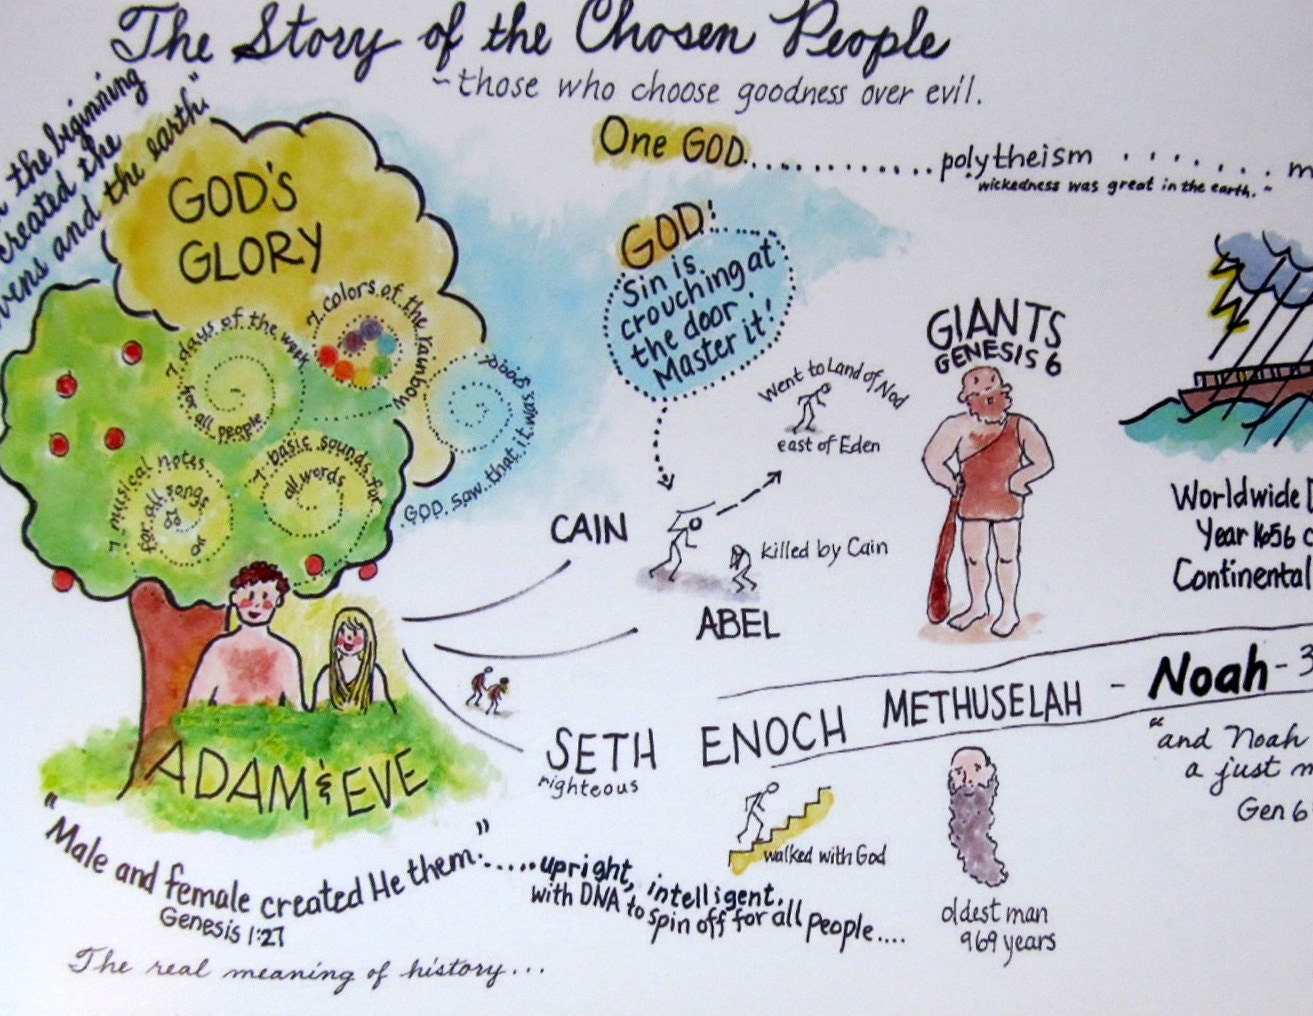 The Story of the Chosen People
~those who choose goodness over evil.
the biginning
created the
and the earth."
One GOD....................polytheism . . . . . . . .
"wickedness was great in the earth."
GOD'S
GLORY
7 days of the week
for all people
7 colors of the rainbow
7 musical notes
for all songs
7 basic sounds for
all words
GOD saw that it was good
GOD:
Sin is
crouching at
the door.
Master it!
Went to Land of Nod
east of Eden
GIANTS
GENESIS 6
CAIN
killed by Cain
ABEL
Worldwide
Year 1656
Continental
SETH
righteous
ENOCH
METHUSELAH - Noah - 3
walked with God
oldest man
969 years
"and Noah
a just
Gen 6
ADAM & EVE
"Male and female created He them."......upright, intelligent.
Genesis 1:27
with DNA to spin off for all people....
The real meaning of history...